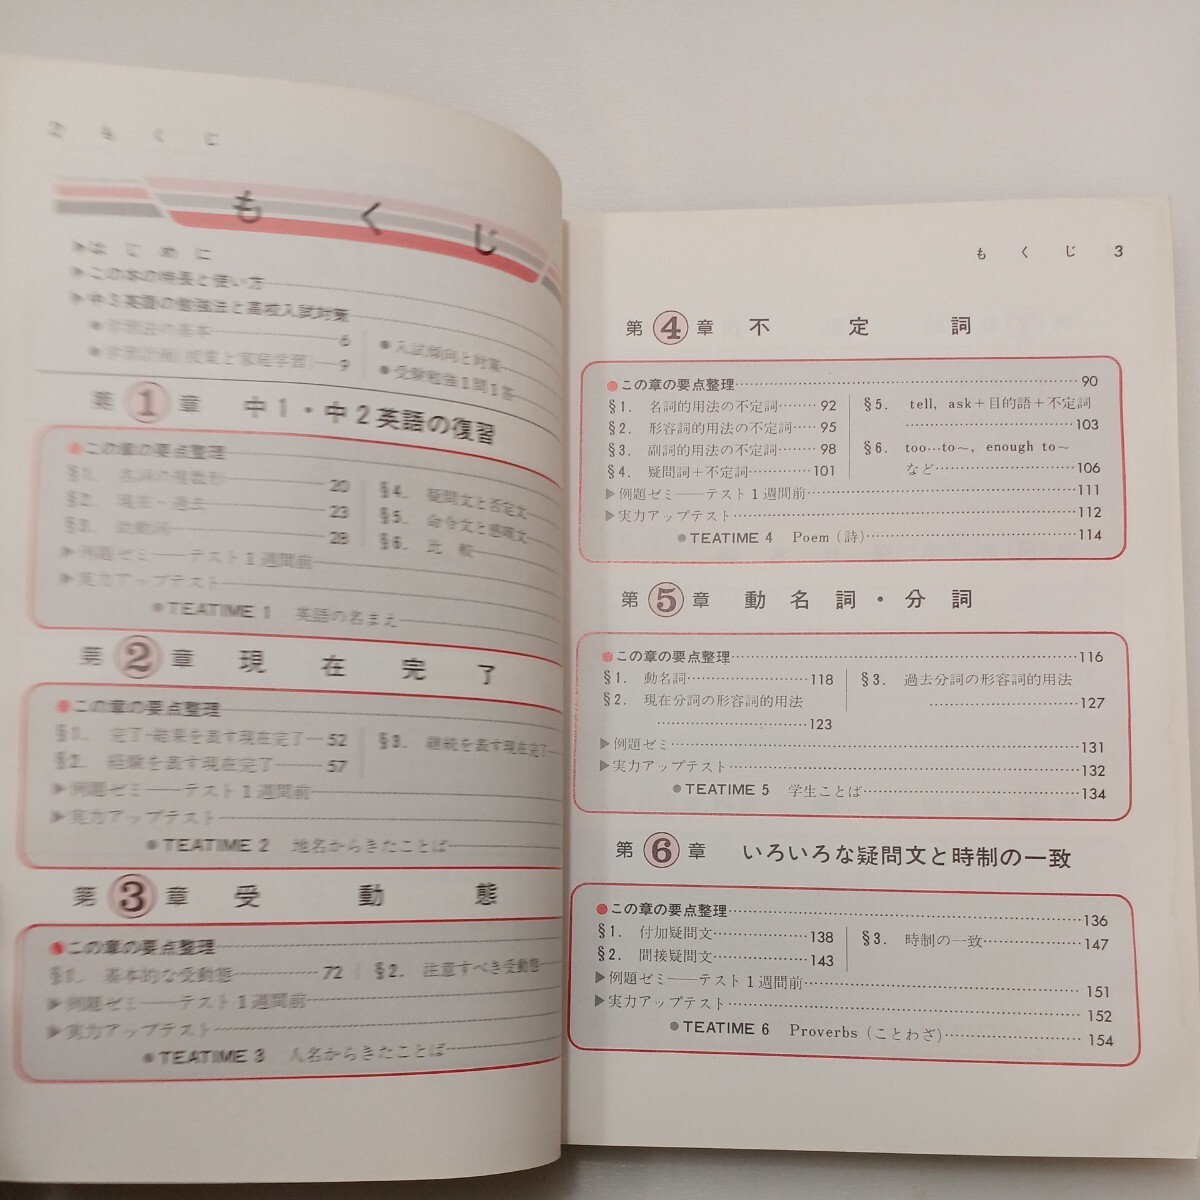 2 もくじ
もくじ
▶はじめに
▶この本の特長と使い方
▶中3英語の勉強法と高校入試対策
●学習法の基本 6
●学習計画(授業と家庭学習) 9
●入試傾向と対策
●受験勉強1問1答
第1章 中1・中2英語の復習
●この章の要点整理
§1. 名詞の複数形 20
§2. 現在・過去 23
§3. 助動詞 28
§4. 疑問文と否定文
§5. 命令文と感嘆文
§6. 比較
▶例題ゼミ──テスト1週間前
▶実力アップテスト
●TEATIME 1 英語の名まえ
第2章 現在完了
●この章の要点整理
§1. 完了・結果を表す現在完了 52
§2. 経験を表す現在完了 57
§3. 継続を表す現在完了
▶例題ゼミ──テスト1週間前
▶実力アップテスト
●TEATIME 2 地名からきたことば
第3章 受動態
●この章の要点整理
§1. 基本的な受動態 72
§2. 注意すべき受動態
▶例題ゼミ──テスト1週間前
▶実力アップテスト
●TEATIME 3 人名からきたことば
もくじ 3
第4章 不定詞
●この章の要点整理 90
§1. 名詞的用法の不定詞 92
§2. 形容詞的用法の不定詞 95
§3. 副詞的用法の不定詞 98
§4. 疑問詞+不定詞 101
§5. tell, ask+目的語+不定詞
103
§6. too…to~, enough to~
など 106
▶例題ゼミ──テスト1週間前 111
▶実力アップテスト 112
●TEATIME 4 Poem (詩) 114
第5章 動名詞・分詞
●この章の要点整理 116
§1. 動名詞 118
§2. 現在分詞の形容詞的用法
123
§3. 過去分詞の形容詞的用法
127
▶例題ゼミ 131
▶実力アップテスト 132
●TEATIME 5 学生ことば 134
第6章 いろいろな疑問文と時制の一致
●この章の要点整理 136
§1. 付加疑問文 138
§2. 間接疑問文 143
§3. 時制の一致 147
▶例題ゼミ──テスト1週間前 151
▶実力アップテスト 152
●TEATIME 6 Proverbs (ことわざ) 154